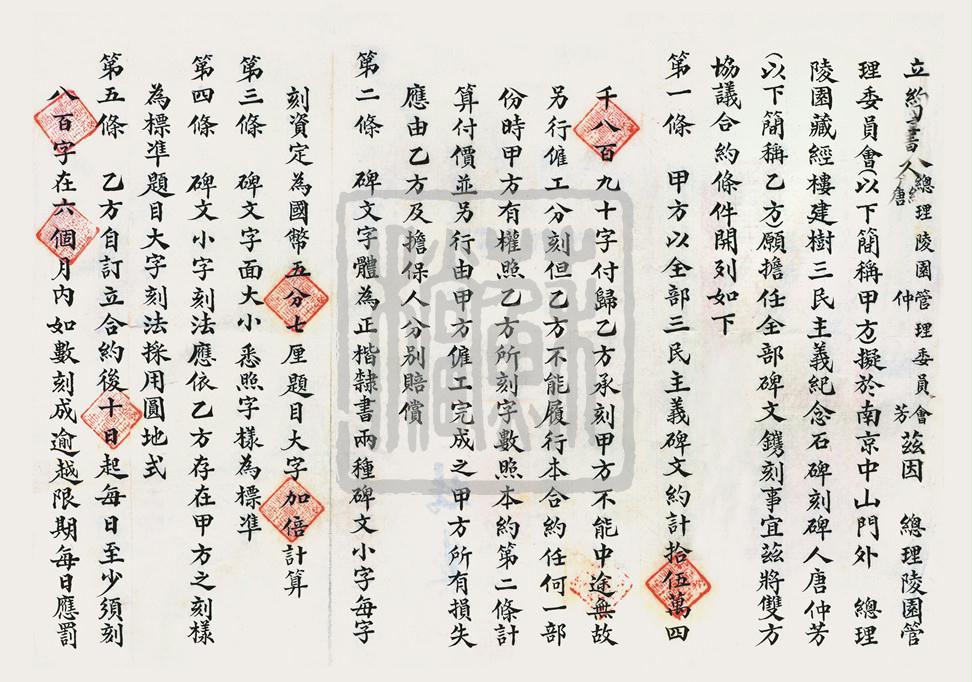 立約書人總理陵園管理委員會唐仲芳茲因 總理陵園管
理委員會(以下簡稱甲方)擬於南京中山門外 總理
陵園藏經樓建樹三民主義紀念石碑刻碑人唐仲芳
(以下簡稱乙方願擔任全部碑文鐫刻事宜茲將雙方
協議合約條件開列如下
第一條 甲方以全部三民主義碑文約計拾伍萬四
千八百九十字付歸乙方承刻甲方不能中途無故
另行僱工分刻但乙方不能履行本合約任何一部
份時甲方有權照乙方所刻字數照本約第二條計
算付價並另行由甲方僱工完成之甲方所有損失
應由乙方及擔保人分別賠償
第二條 碑文字體為正楷隸書兩種碑文小字每字
刻資定為國幣五分七厘題目大字加倍計算
第三條 碑文字面大小悉照字樣為標準
第四條 碑文小字刻法應依乙方存在甲方之刻樣
為標準題目大字刻法採用圓地式
第五條 乙方自訂立合約後十日起每日至少須刻
八百字在六個月內如數刻成逾越限期每日應罰